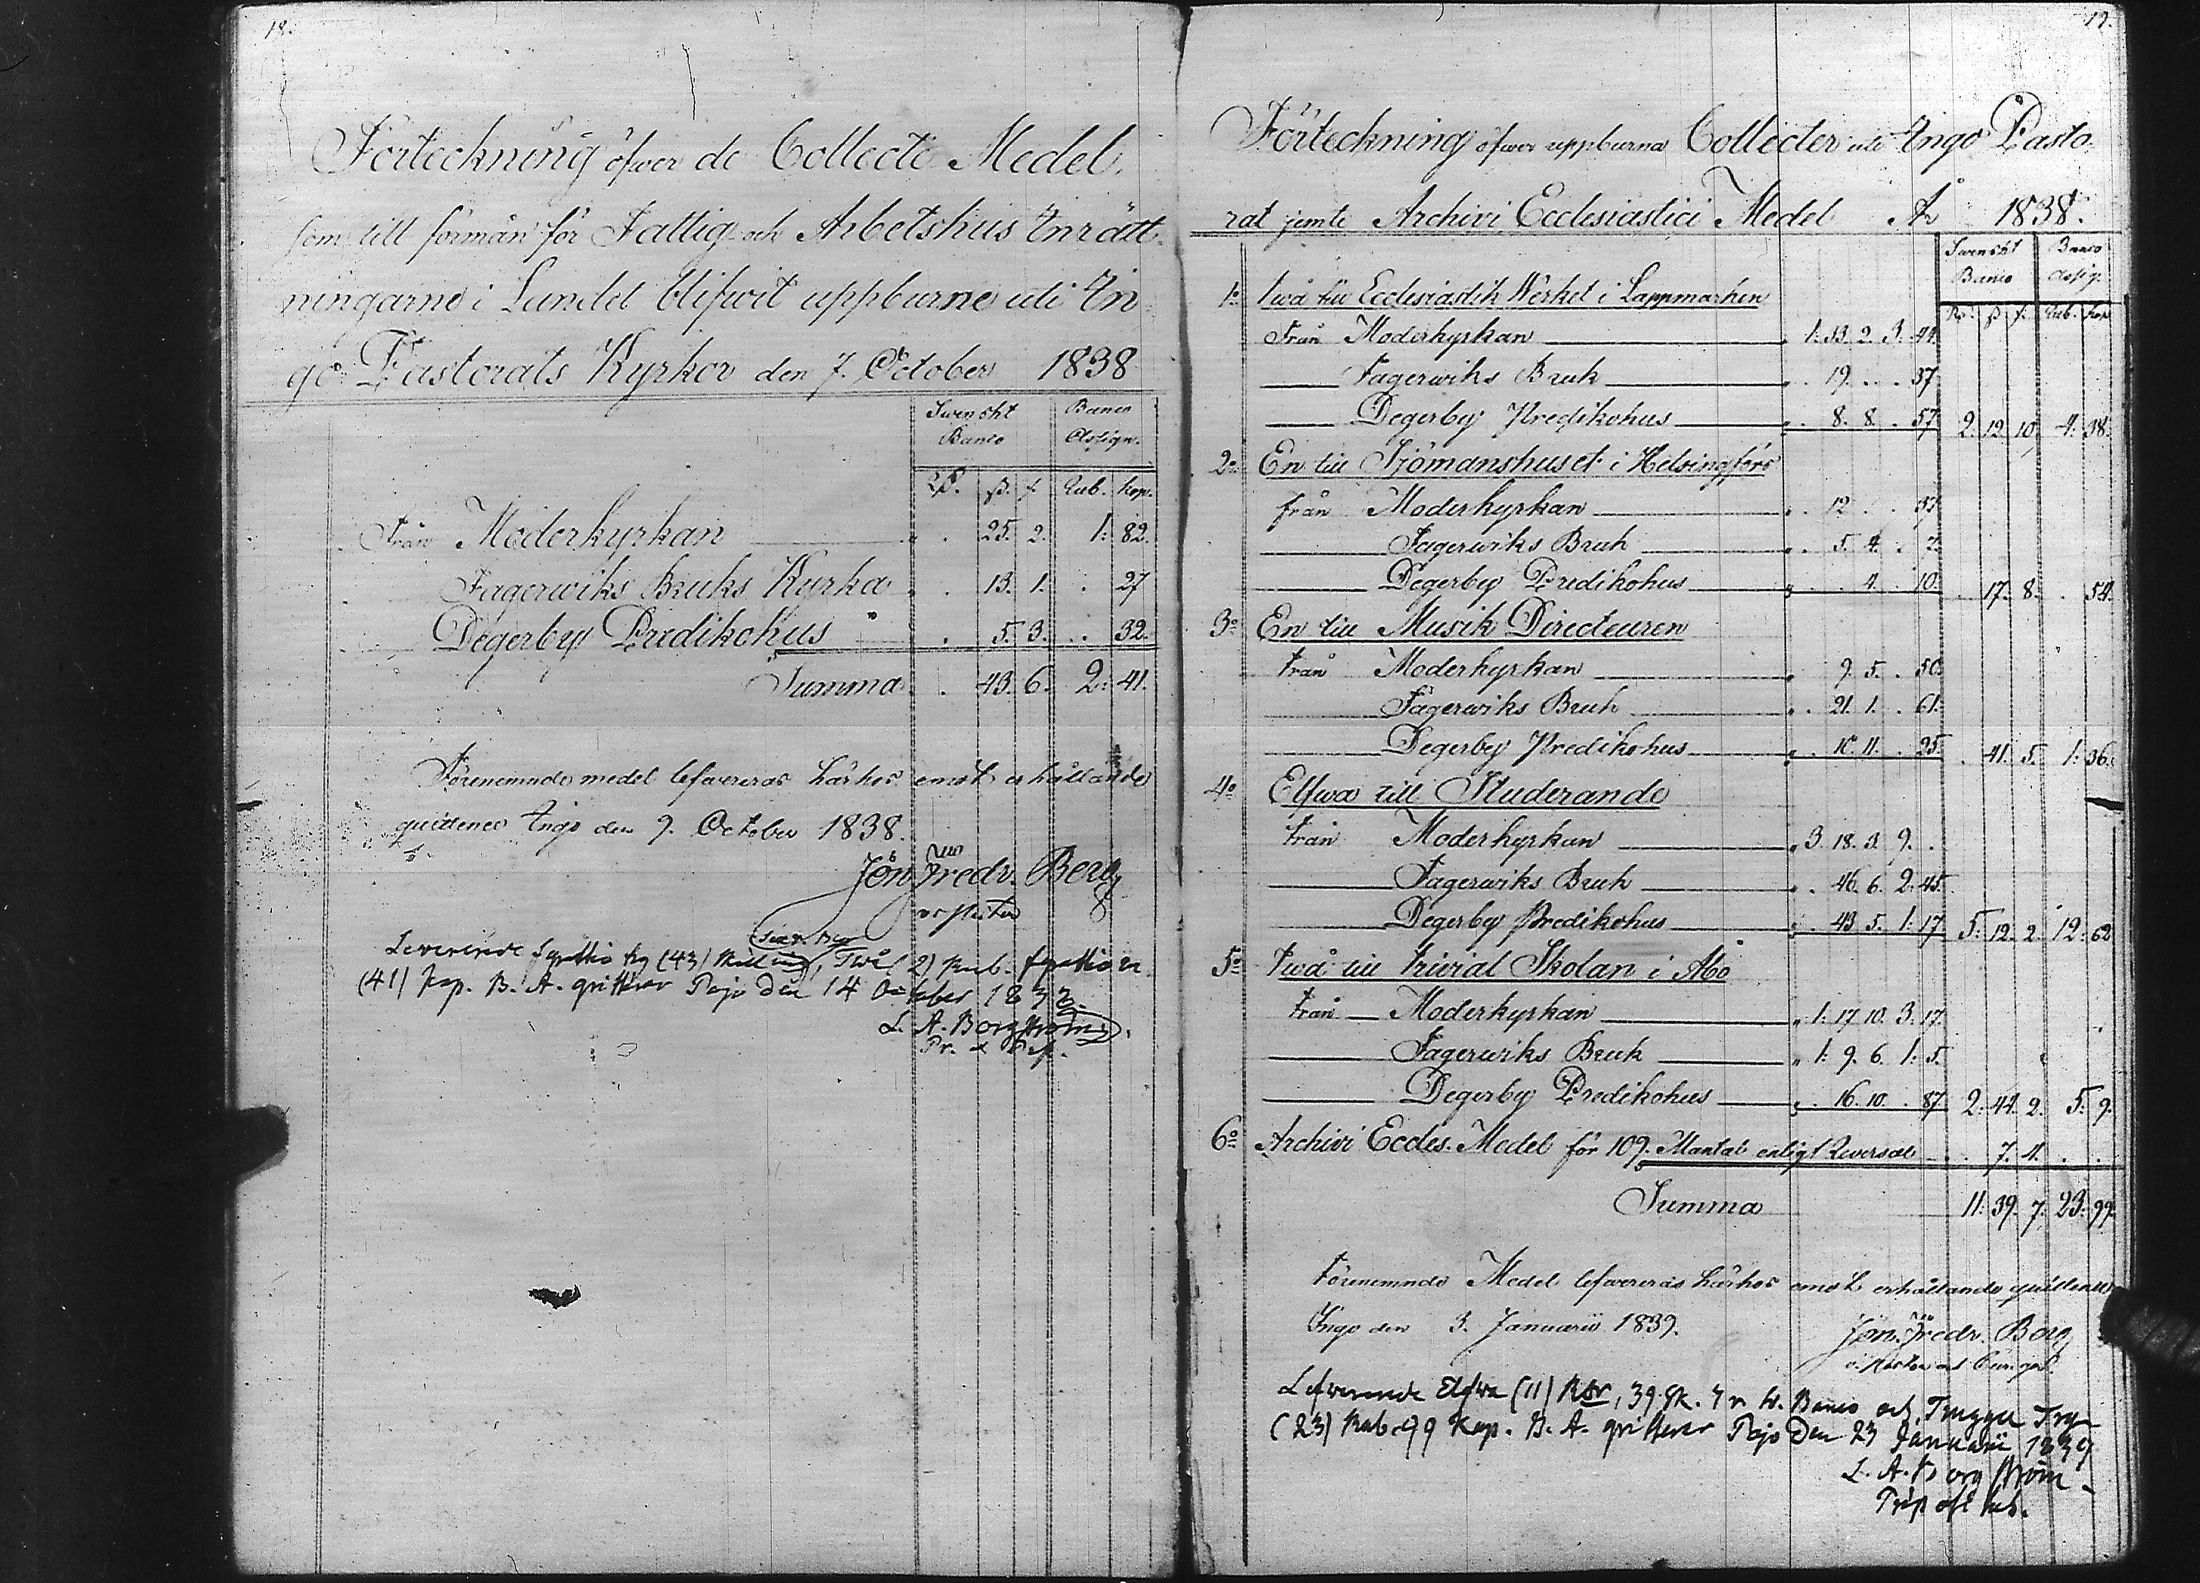 18.
Förteckning öfver de Collecte Medel,
som till förmån för Fattig- och Arbetshus Inrätt-
ningarne i Landet blifwit uppburne uti In-
gå Pastorats Kyrkor den 7. October 1838
Swenskt Banco
Banco Assign.
Rß. ß. f. Rub. kop.
Från Moderkyrkan . 25. 2. 1: 82.
Fagerwiks Bruks Kyrka . 13. 1. . 27
Degerby Predikohus . 5. 3. . 32.
Summa . 43. 6. 2: 41.
Förenemnde medel lefwereras härhos emot erhållande
quittence Ingo den 9. October 1838.
Jon. Fredr. Berg
Levererade Fyratio tre (43) skilling, Två (2) Rub. fyratio en
(41) Kop. B. A. qvitterar Pojo den 14 October 1838.
L. A. Borgström
19.
Förteckning öfwer uppburna Collecter uti Ingo Pasto-
rat jemte Archivi Ecclesiastici Medel År 1838.
Swenskt Banco
Banco Assig.
Rß. ß. f. Rub. kop.
1o Twå till Ecclesiastik Werket i Lappmarken
Från Moderkyrkan 1: 33. 2. 3. 44.
Fagerwiks Bruk . 19. . . 37
Degerby Predikohus . 8. 8. . 57. 2. 12. 10. 4: 38.
2o En till Sjömanshuset i Helsingfors
från Moderkyrkan . 12 . . 37
Fagerwiks Bruk . 5. 4. . 7.
Degerby Predikohus . . 4. . 10. . 17. 8. . 54.
3o En till Musik Directeuren
från Moderkyrkan . 9. 5. . 50.
Fagerwiks Bruk . 21. 1. . 61.
Degerby Predikohus . 10. 11. . 25. . 41. 5. 1: 36.
4o Elfwa till Studerande
från Moderkyrkan 3. 18. 3. 9. .
Fagerwiks Bruk . 46. 6. 2: 45.
Degerby Predikohus . 43. 5. 1: 17. 5. 12. 2. 12: 62
5o Twå till trivial Skolan i Åbo
från Moderkyrkan 1: 17. 10. 3: 17.
Fagerwiks Bruk 1: 9. 6. 1: 5.
Degerby Predikohus . 16. 10. . 87. 2: 44. 2. 5: 9.
6o Archivi Eccles. Medel för 109. Mantal enligt Reversal . 7. 4. . .
Summa 11: 39. 7. 23: 99.
Förenemnde Medel lefwereras härhos emot erhållande quittence
Ingo den 3. Januarii 1839.
Jon. Fredr. Berg
Lefwererade Elfwa (11) Rdr, 39 sk. 7 r. Banco och Tjugu Tre
(23) Rub. 99 Kop. B. A. qvitterar Pojo Den 23 Januarii 1839
L. A. Borgström